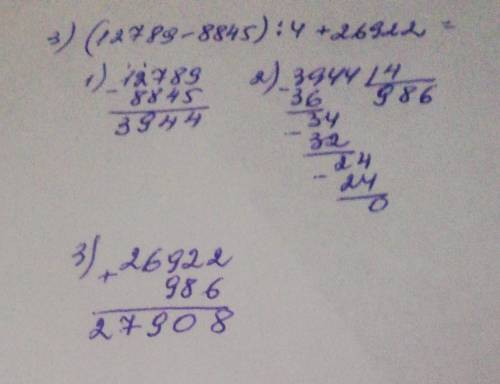 3) (12789-8845):4+26922=
1) 12789
- 8845
3944
2) 3944 | 4
- 36 986
34
- 32
24
- 24
0
3) 26922
+ 986
27908